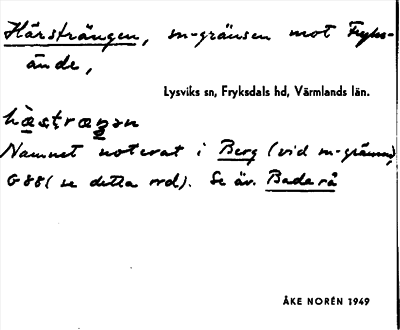 Härsträngen, sn-gränsen mot Fryks-
ände,
Lysviks sn, Fryksdals hd, Värmlands län.
Namnet noterat i Berg (vid sn-gränsen),
G 88 (se detta ord). Se äv. Bada rå
ÅKE NORÉN 1949